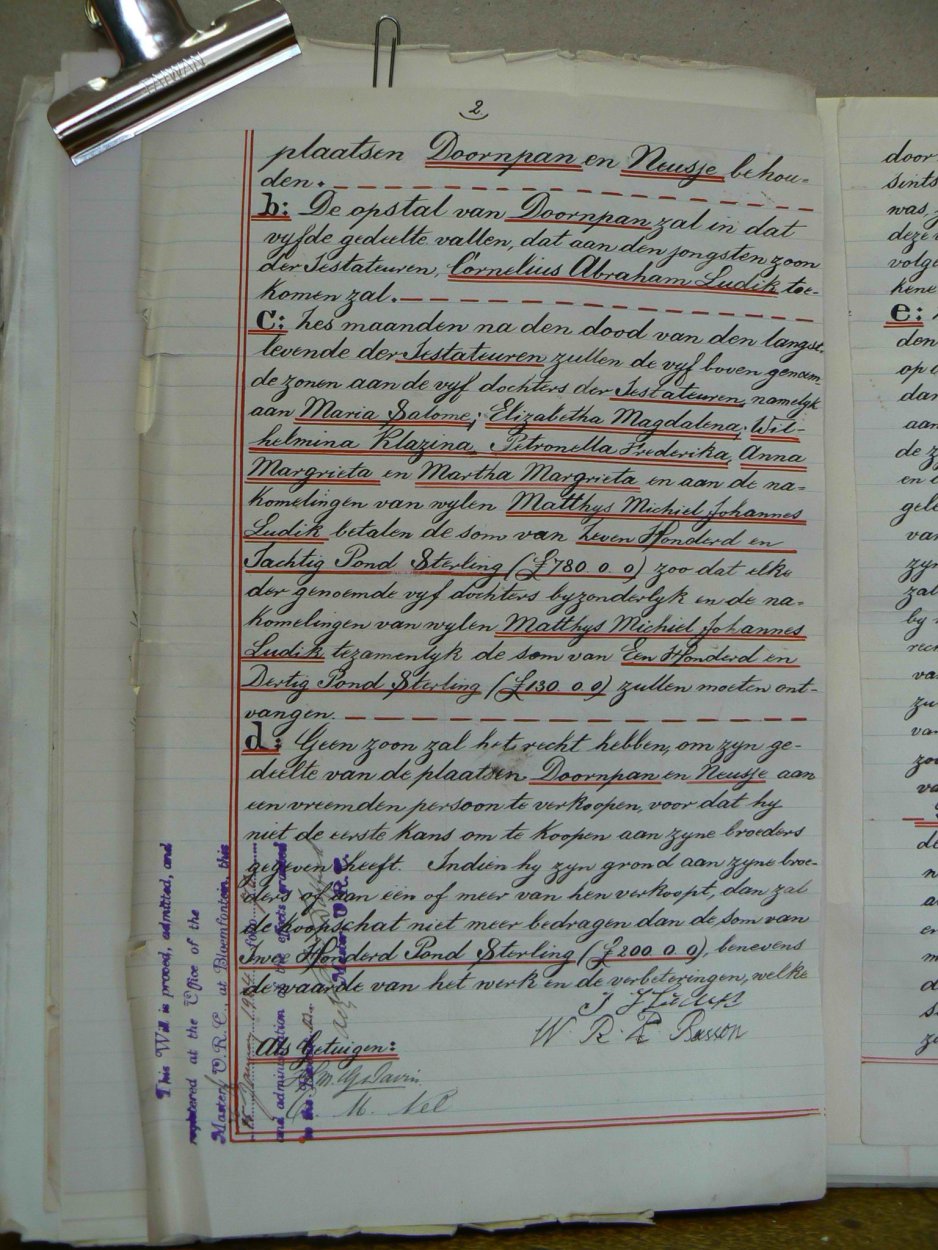 TAIWAN
2
plaatsen Doornpan en Neusje behou-
den.
b: De opstal van Doornpan zal in dat
vyfde gedeelte vallen, dat aan den jongsten zoon
der Testateuren, Cornelius Abraham Ludik toe-
komen zal.
c: Zes maanden na den dood van den langst-
levende der Testateuren zullen de vyf boven genoem-
de zonen aan de vyf dochters der Testateuren, namelyk
aan Maria Salome; Elizabetha Magdalena; Wil-
helmina Klazina, Petronella Frederika, Anna
Margrieta en Martha Margrieta en aan de na-
komelingen van wylen Matthys Michiel Johannes
Ludik betalen de som van Zeven Honderd en
Tachtig Pond Sterling (£780.0.0) zoo dat elke
der genoemde vyf dochters byzonderlyk en de na-
komelingen van wylen Matthys Michiel Johannes
Ludik tezamenlyk de som van Een Honderd en
Dertig Pond Sterling (£130.0.0) zullen moeten ont-
vangen.
d: Geen zoon zal het recht hebben, om zyn ge-
deelte van de plaatsen Doornpan en Neusje aan
een vreemden persoon te verkoopen, voor dat hy
niet de eerste kans om te koopen aan zyne broeders
gegeven heeft. Indien hy zyn grond aan zyne broe-
ders of aan een of meer van hen verkoopt, dan zal
de koopschat niet meer bedragen dan de som van
Twee Honderd Pond Sterling (£200.0.0), benevens
de waarde van het werk en de verbeteringen, welke
W R Basson
Als Getuigen:
M. Nel
This Will is proved, admitted, and
registered at the Office of the
Master, O.R.C., at Bloemfontein, this
and administration of the effects granted
to the
Master O.R.C.
door
sints
was
deze
volge
kene
e:
den
op
dan
aan
de
en
gele
van
zyn
zal
by
rech
va
zu
van
zoo